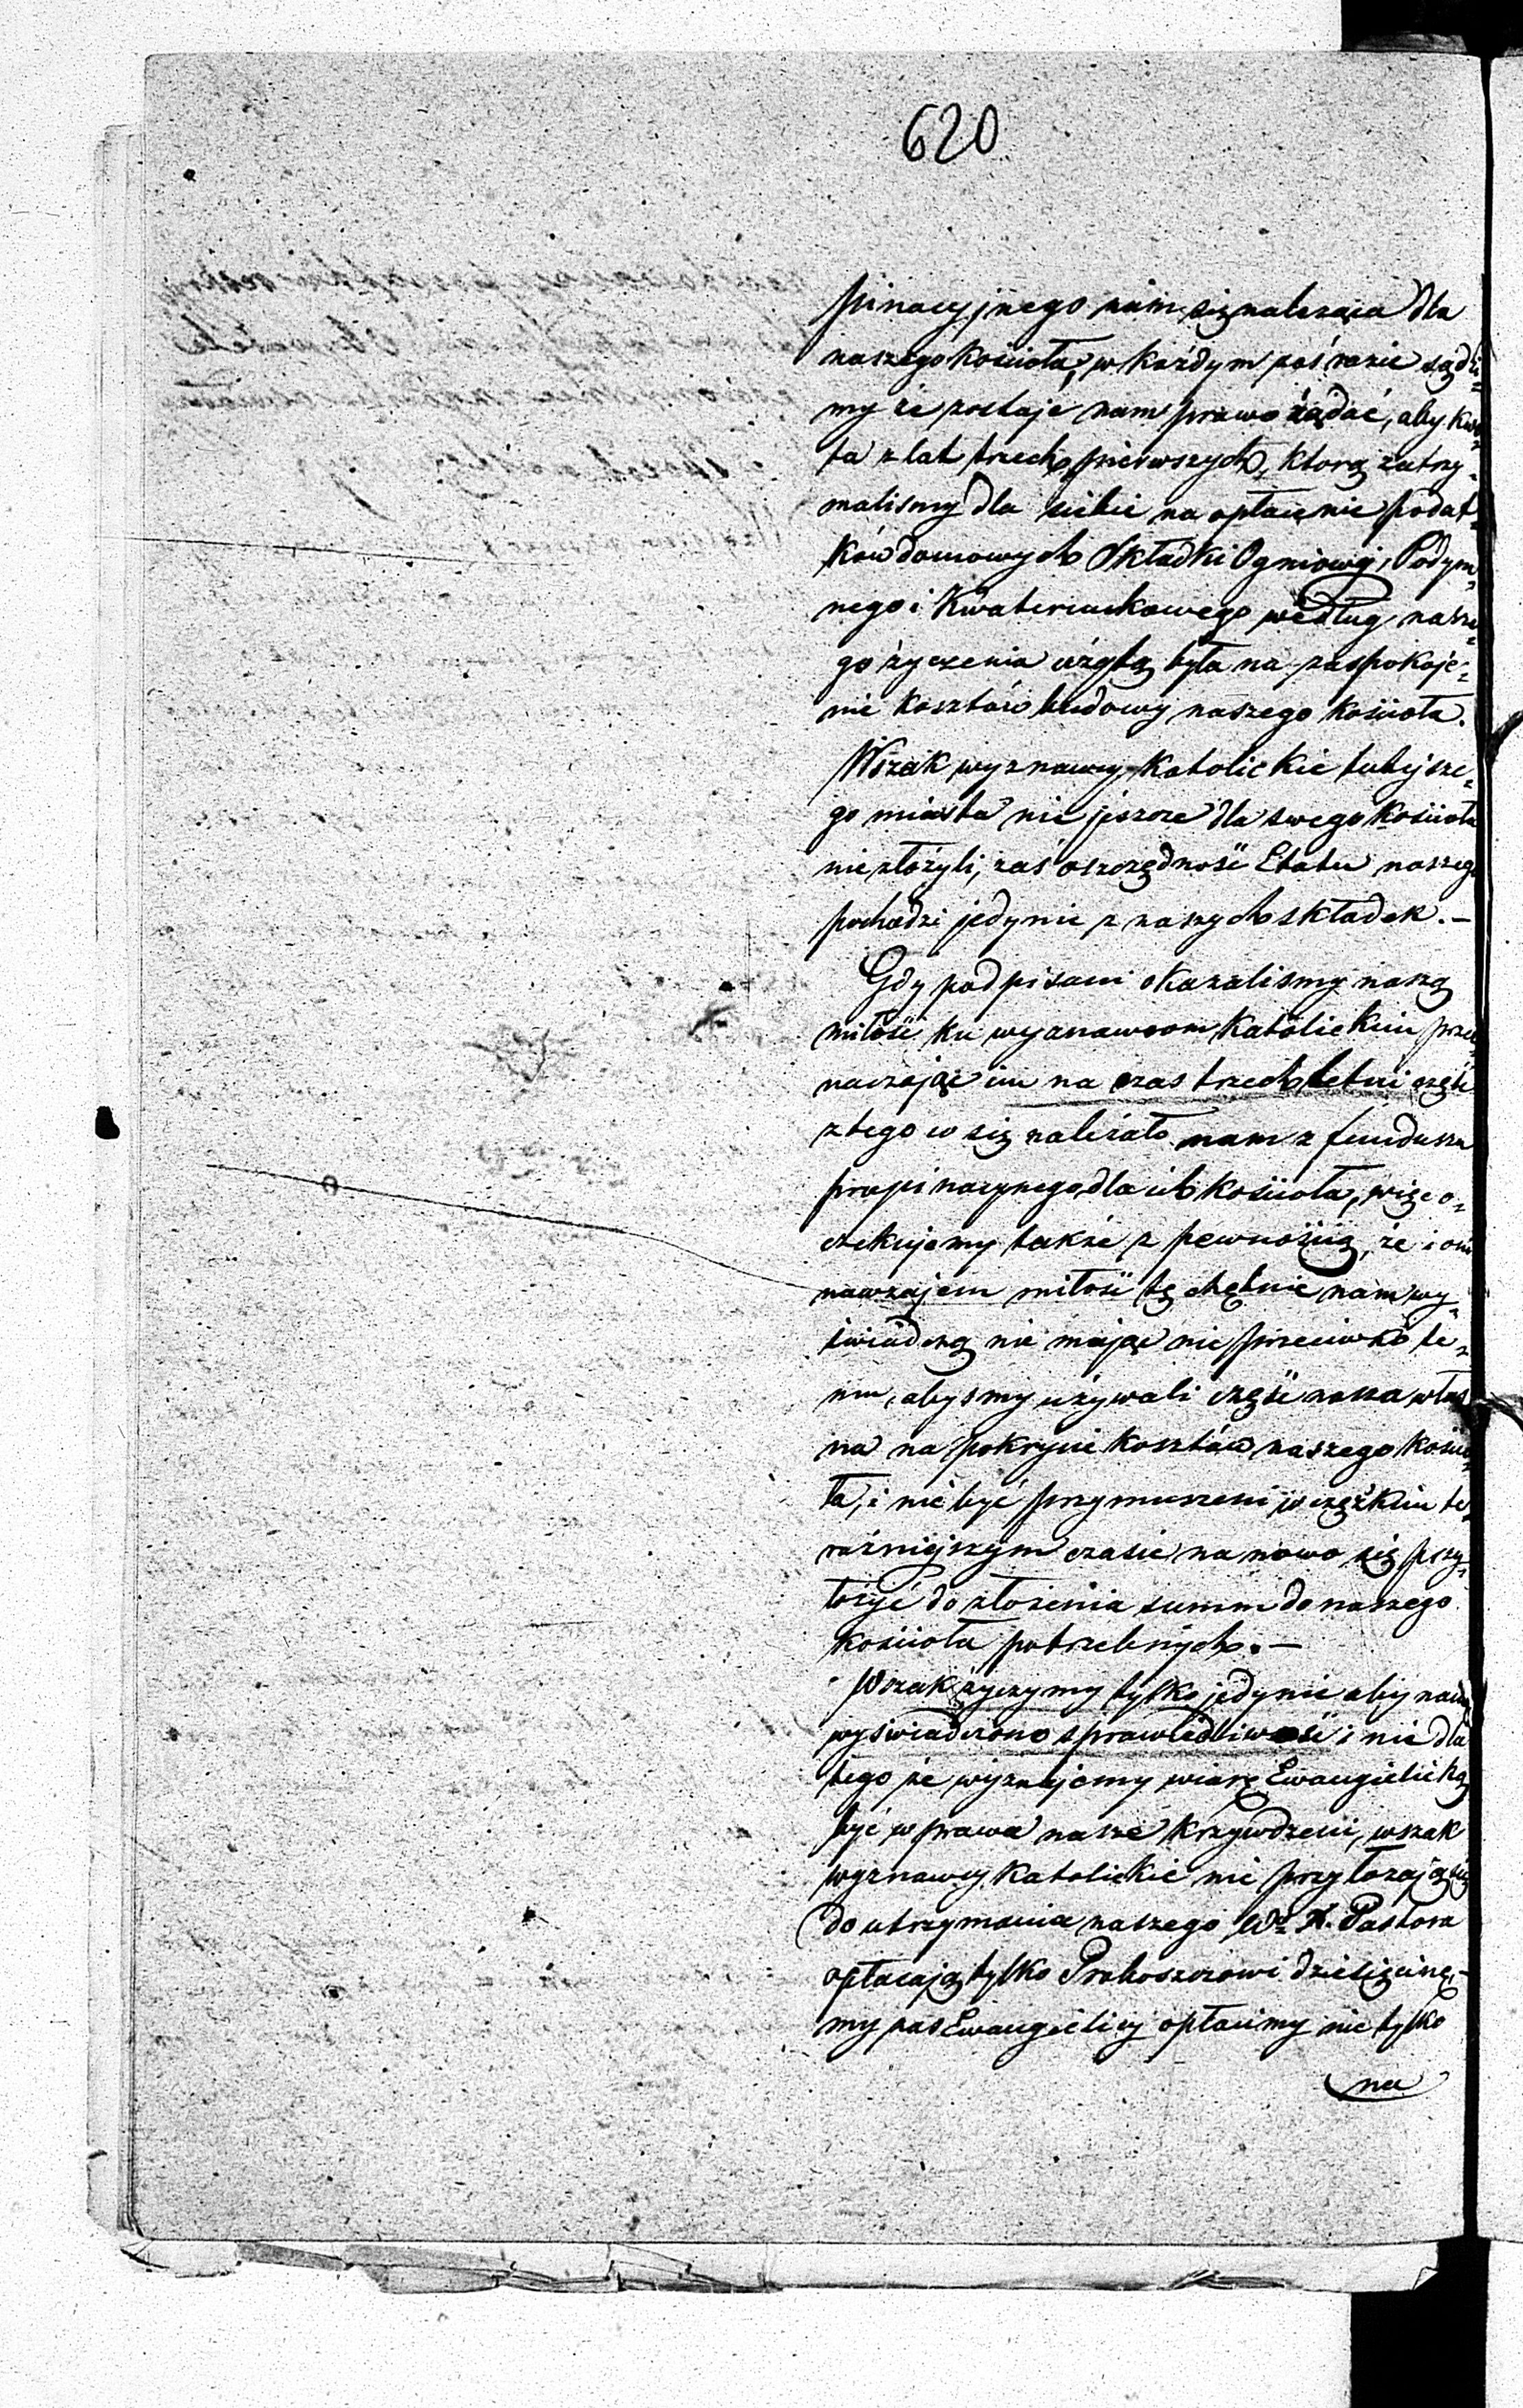 620
pinacyjnego nam się należąca dla
naszego kościoła, w każdym paś razie sądzi=
my że zostaje nam prawo żądać, aby kwo=
ta z lat trzech pierwszych, ktorą zatrzy=
malismy dla siebie na opłacenie podat=
ków domowych Składki Ogniowej, Podym=
nego i Kwaterunkowego według nasze=
go życzenia użytą była na zaspokoje=
nie kosztów budowy naszego kościoła.
Wszak wyznawcy Katolickie tutejsze=
go miasta nic jeszcze dla swego Kościoła
nie złożyli, zaś oszczędność Etatu naszego
pochodzi jedynie z naszych składek. —
Gdy podpisani okazalismy naszą
miłość ku wyznawcom Katolickim prze=
naczając im na czas trzech letni część
z tego co się należało nam z funduszu
propinacyjnego dla ich Kościoła, więc o=
czekujemy także z pewnością, że i oni
nawzajem miłość tę chętnie nam wy=
świadczą nie mając nic przeciwko te=
mu, abysmy używali część nasza włas=
na na pokrycie kosztów naszego kościo=
ła, i nie być przymuszeni w ciężkim te=
raźniejszym czasie na nowo się przy=
łożyć do złożenia summ do naszego
Kościoła potrzebnych. —
Wszak życzymy tylko jedynie aby nam
wyświadczono sprawiedliwość i nie dla
tego że wyznajemy wiarę Ewangielicką
być w prawa nasze krzywdzeni, wszak
wyznawcy Katolickie nie przyłożają się
do utrzymania naszego Wo X. Pastora
opłacają tylko Proboszczowi dziesięcinę, —
my zas Ewangielicy opłacimy nie tylko
na